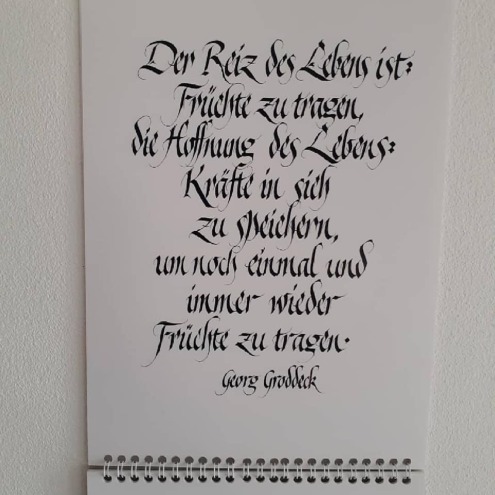 Der Reiz des Lebens ist:
Früchte zu tragen,
die Hoffnung des Lebens:
Kräfte in sich
zu speichern,
um noch einmal und
immer wieder
Früchte zu tragen.
Georg Groddeck